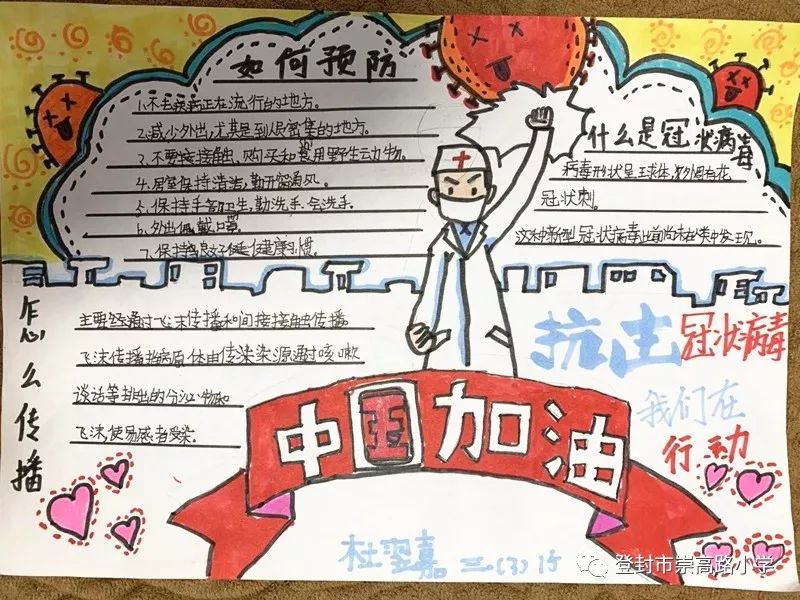 如何预防
1.不去疾病正在流行的地方。
2.减少外出,尤其是到人很密集的地方。
3.不要接接触、购买和食用野生动物。
4.居室保持清洁,勤开窗通风。
5.保持手部卫生,勤洗手、会洗手。
6.外出佩戴口罩。
7.保持良好健康习惯。
什么是冠状病毒
病毒形状呈球体,外围有花
冠状刺。
这种新型冠状病毒此前尚未在人类中发现。
怎么传播
主要经通过飞沫传播和间接接触传播
飞沫传播指病原体由传染源通过咳嗽
谈话等排出的分泌物和
飞沫,使易感者受染。
抗击冠状病毒
我们在
行动
中国加油
杜翌嘉 三(3)班
登封市崇高路小学